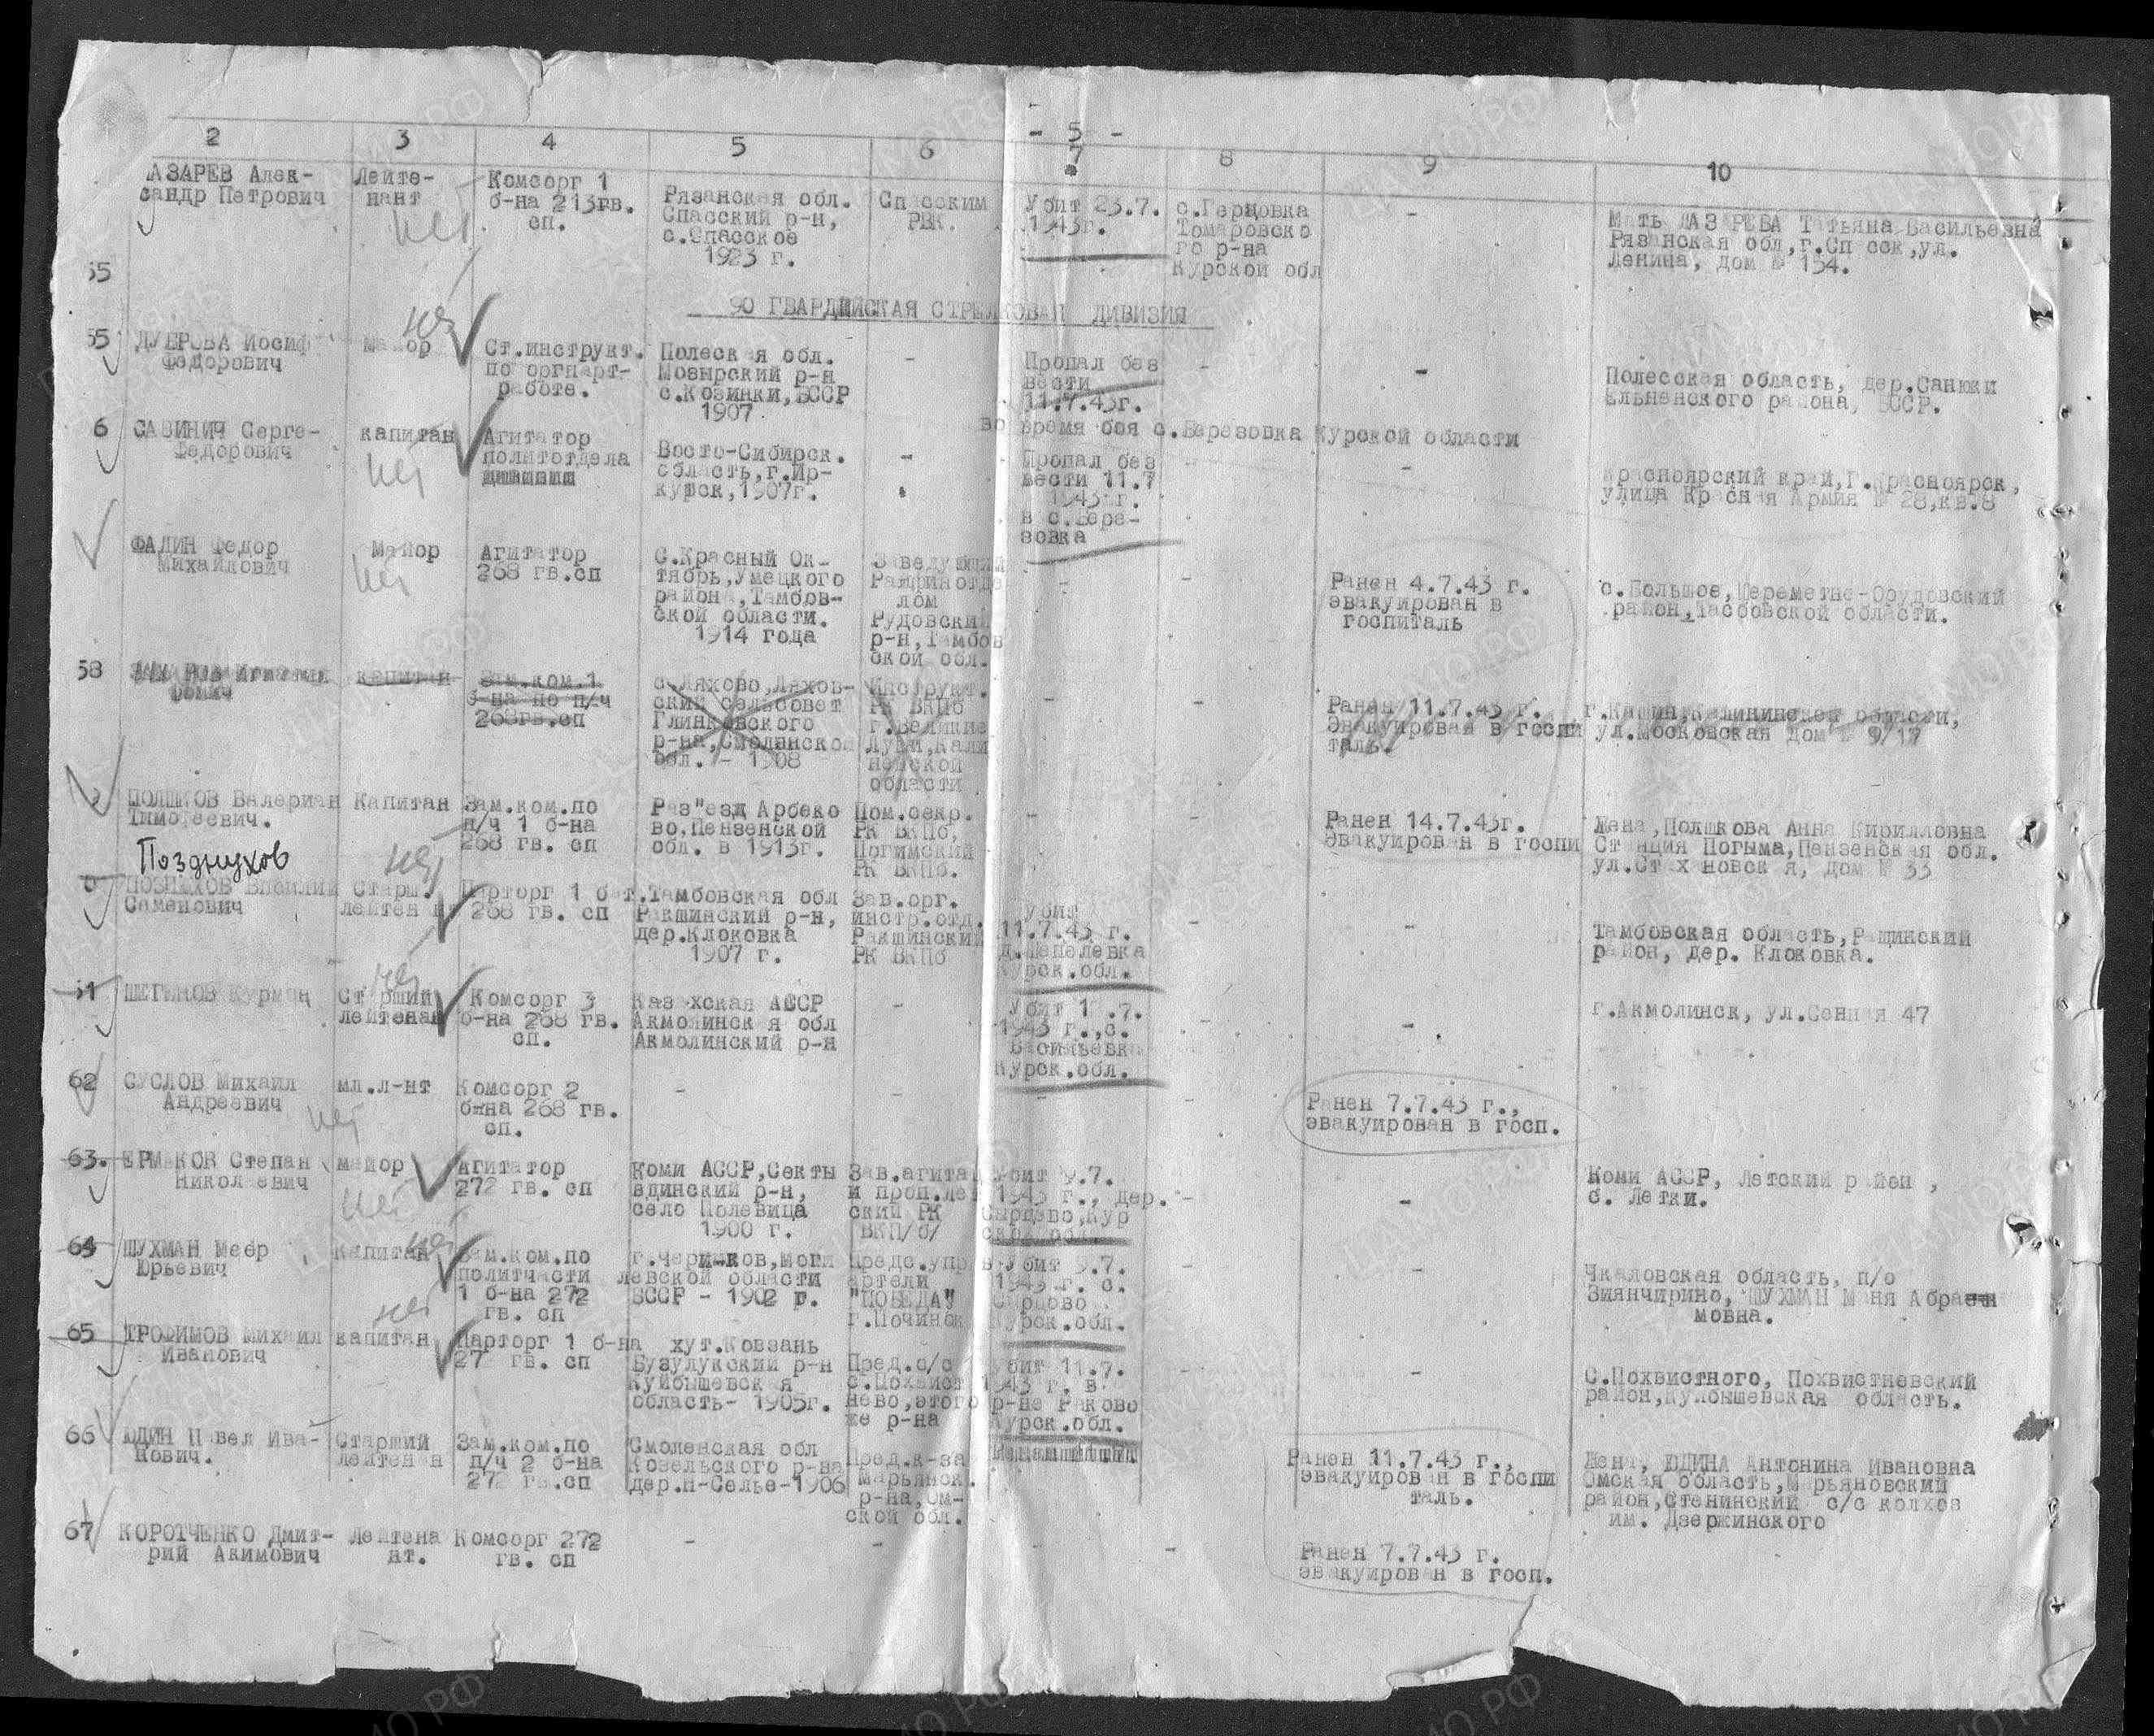 - 5 -
2 3 4 5 6 7 8 9 10
АЗАРЕВ Алек-
сандр Петрович
Лейте-
нант
нет
Комсорг 1
б-на 213гв.
сп.
Рязанская обл.
Спасский р-н,
с.Спасское
1923 г.
Спасским
РВК.
Убит 23.7.
1943г.
с.Герцовка
Томаровско
го р-на
Курской обл
-
Мать ЛАЗАРЕВА Татьяна Васильевна
Рязанская обл,г.Сп сск,ул.
Ленина, дом № 154.
55
90 ГВАРДЕЙСКАЯ СТРЕЛКОВАЯ ДИВИЗИЯ
55 ДУБРОВА Иосиф
Федорович
майор
нет
Ст.инструкт.
по оргпарт-
работе.
Полеская обл.
Мозырский р-н
с.Козинки,БССР
1907
-
Пропал без
вести
11.7.43г.
-
-
Полесская область, дер.Санюки
Ельненского района, БССР.
во время боя с.Березовка Курской области
6 САВИНИЧ Серге-
Федорович
капитан
нет
Агитатор
политотдела
Восто-Сибирск.
область,г.Ир-
кутск,1907г.
-
Пропал без
вести 11.7
1943 г.
в с.Бере-
зовка
-
-
Красноярский край,Г.Красноярск,
улица Красная Армия № 28,кв.8
ФАЛИН Федор
Михайлович
Майор
нет
Агитатор
268 гв.сп
С.Красный Ок-
тябрь,Умецкого
района,Тамбов-
ской области.
1914 года
Заведующий
Рапаринотде
лом
Рудовский
р-н,Тамбов
ской обл.
-
-
Ранен 4.7.43 г.
эвакуирован в
госпиталь
с.Большое,Шереметно-Орудовский
район,Тасбовской области.
58
капитан
Зам.ком.1
б-на по п/ч
268гв.сп
с.Ляхово,Ляхов-
ский сельсовет
Глинковского
р-на,Смоленской
обл. - 1908
Инструкт.
РК ВКПб
г.Великие
Луки,Кали
нинской
области
-
-
Ранен 11.7.43 г.
Эвакуирован в госпи
таль.
г.Кашин,Калининской области,
ул.Московская дом № 9/17
ПОЛШКОВ Валериан
Тимофеевич.
Капитан
Зам.ком.по
п/ч 1 б-на
268 гв. сп
Раз"езд Арбеко
во,Пензенской
обл. в 1913г.
Пом.секр.
РК ВКПб,
Погимский
РК ВКПб.
-
-
Ранен 14.7.43г.
Эвакуирован в госпи
Жена,Полшкова Анна Кирилловна
Станция Погыма,Пензенская обл.
ул.Стахановская, дом № 33
Позднухов
ПОЗНЫХОВ Василий
Саменович
Старш.
лейтенант
нет
Парторг 1 бат.
268 гв. сп
Тамбовская обл
Ракшинский р-н,
дер.Клоковка
1907 г.
Зав.орг.
инстр.отд.
Ракшинский
РК ВКПб
Убит
11.7.43 г.
д.Шепелевка
Курск.обл.
-
-
Тамбовская область,Ращинский
район, дер. Клоковка.
61 ШЕГЕНОВ Курман
Старший
лейтенан
нет
Комсорг 3
б-на 268 гв.
сп.
Казахская АССР
Акмолинская обл
Акмолинский р-н
-
Убит 1 .7.
1943 г.,с.
Васильевка
Курск.обл.
-
-
г.Акмолинск, ул.Сенная 47
62 СУСЛОВ Михаил
Андреевич
мл.л-нт
нет
Комсорг 2
б-на 268 гв.
сп.
-
-
-
-
Ранен 7.7.43 г.,
эвакуирован в госп.
63. ЕРМАКОВ Степан
Николаевич
майор
нет
Агитатор
272 гв. сп
Коми АССР,Сикты
вдинский р-н,
село Полевица
1900 г.
Зав.агита
и проп.Лет
ский РК
ВКП/б/
Убит 9.7.
1943 г., дер.
Сырцово,Кур
ской обл.
-
-
Коми АССР, Летский район,
с. Летки.
64 ШУХМАН Меер
Юрьевич
капитан
нет
Зам.ком.по
политчасти
1 б-на 272
гв. сп
г.Чериков,Моги
левской области
БССР - 1902 г.
Предс.упр
артели
"ПОБЕДА"
г.Починок
Убит 9.7.
1943 г. с.
Сырцово
Курск.обл.
-
-
Чкаловская область, п/о
Зиянчирино, ШУХМАН Маня Абрам
мовна.
65 ТРОФИМОВ Михаил
Иванович
капитан
нет
Парторг 1 б-на
27 гв. сп
хут.Ковзань
Бузулукский р-н
Куйбышевская
область- 1905г.
Пред.с/с
с.Похвист
нево,этого
же р-на
Убит 11.7.
1943 г. в
р-не Раково
Курск.обл.
-
-
С.Похвистного, Похвистневский
район,Куйбышевская область.
66 ЮДИН Павел Ива-
нович.
Старший
лейтенан
Зам.ком.по
п/ч 2 б-на
272 гв.сп
Смоленская обл
Козельского р-на
дер.Н-Селье-1906
Пред.к-за
Марьянск.
р-на,Ом-
ской обл.
Ранен 11.7.43 г.,
эвакуирован в госпи
таль.
Жена, ЮДИНА Антонина Ивановна
Омская область,Марьяновский
район,Стенинский с/с колхоз
им. Дзержинского
67 КОРОТЧЕНКО Дмит-
рий Акимович
Лейтена
нт.
Комсорг 272
гв. сп
-
-
-
-
Ранен 7.7.43 г.
эвакуирован в госп.